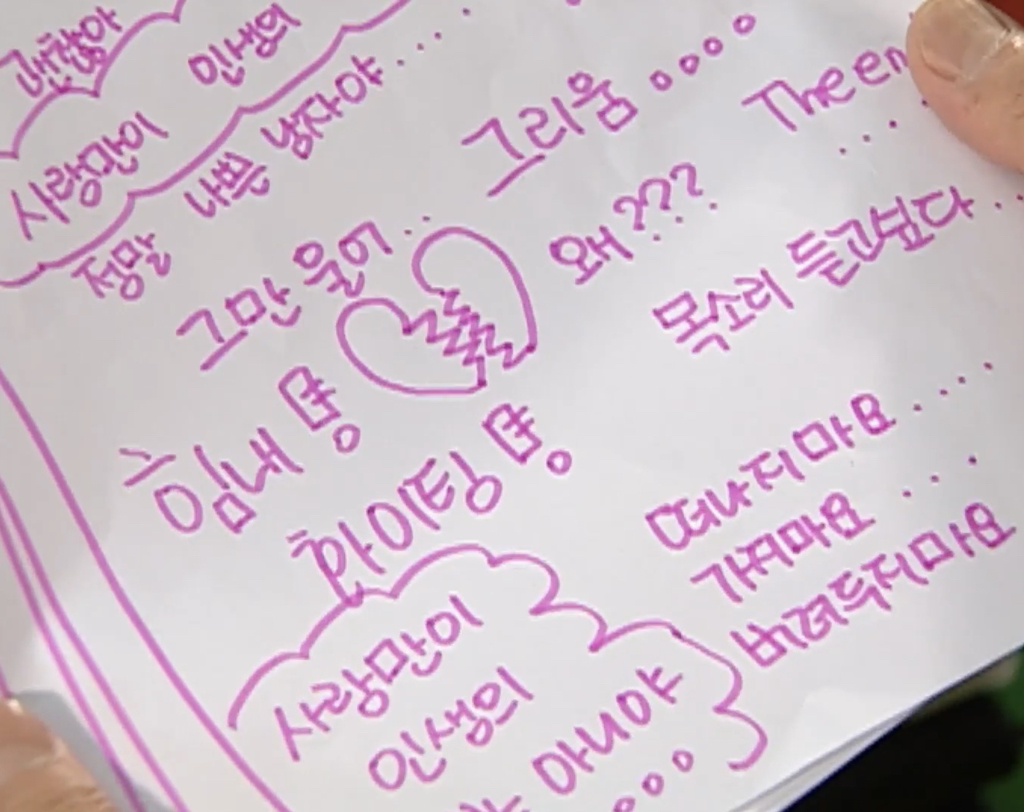 괜찮아
사랑만이 인생의
정말 나쁜 남자야...
그리움 ....
The en
...
그만 울어..
왜???
목소리 듣고싶다..
힘내 묭
화이팅 묭
떠나지마요....
가지마요...
버려두지마요
사랑만이
인생의
아니야
...